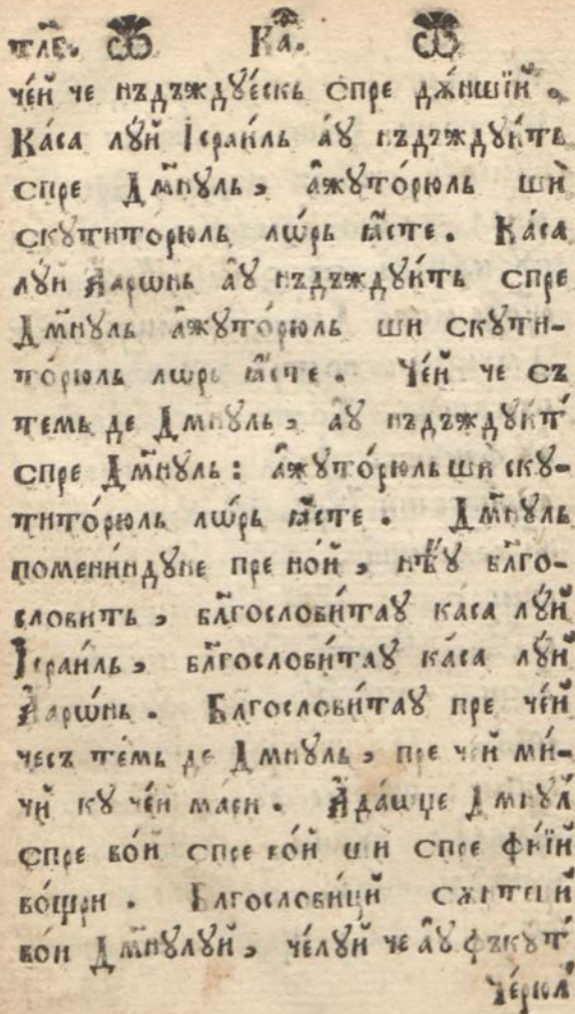 тлЕ. Ка҃.
че́й че нъдъждꙋе́скь спре дѫ́ншїй.
Ка́са лꙋ́й Ісраи́ль а́ꙋ нъдъждꙋи́ть
спре Дм҃нꙋль, ажꙋто́рюль ши̂
скꙋтито́рюль лѡ́рь ꙗ́сте. Ка́са
лꙋ́й Ааро́нь аꙋ нъдъждꙋи́ть спре
Дм҃нꙋль ажꙋто́рюль ши скꙋти-
то́рюль лѡрь ꙗ́сте. Че́й че съ
темь де Дм҃нꙋль, аꙋ нъдъждꙋи́т
спре Дм҃нꙋль: ажꙋто́рюль ши скꙋ-
тито́рюль лѡ́рь ꙗ́сте. Дм҃нꙋль
помени́ндꙋне пре но́й, нѣꙋ бл҃го-
словить, бл҃гослови́таꙋ ка́са лꙋ́й
Ісраи́ль, бл҃гослови́таꙋ ка́са лꙋ́й
Аарѡ́нь. Бл҃гослови́таꙋ пре че́й
чесъ те́мь де Дм҃нꙋль, пре чей ми́-
чй кꙋ че́й мари. Ада́ѡще Дм҃нꙋл
спре во́й спре во́й ши спре фі́їй
во́щри. Бл҃гослови́цй сѫнтеци́й
во́и Дм҃нꙋлꙋй, че́лꙋй че аꙋ фъкꙋ́т
че́рюл